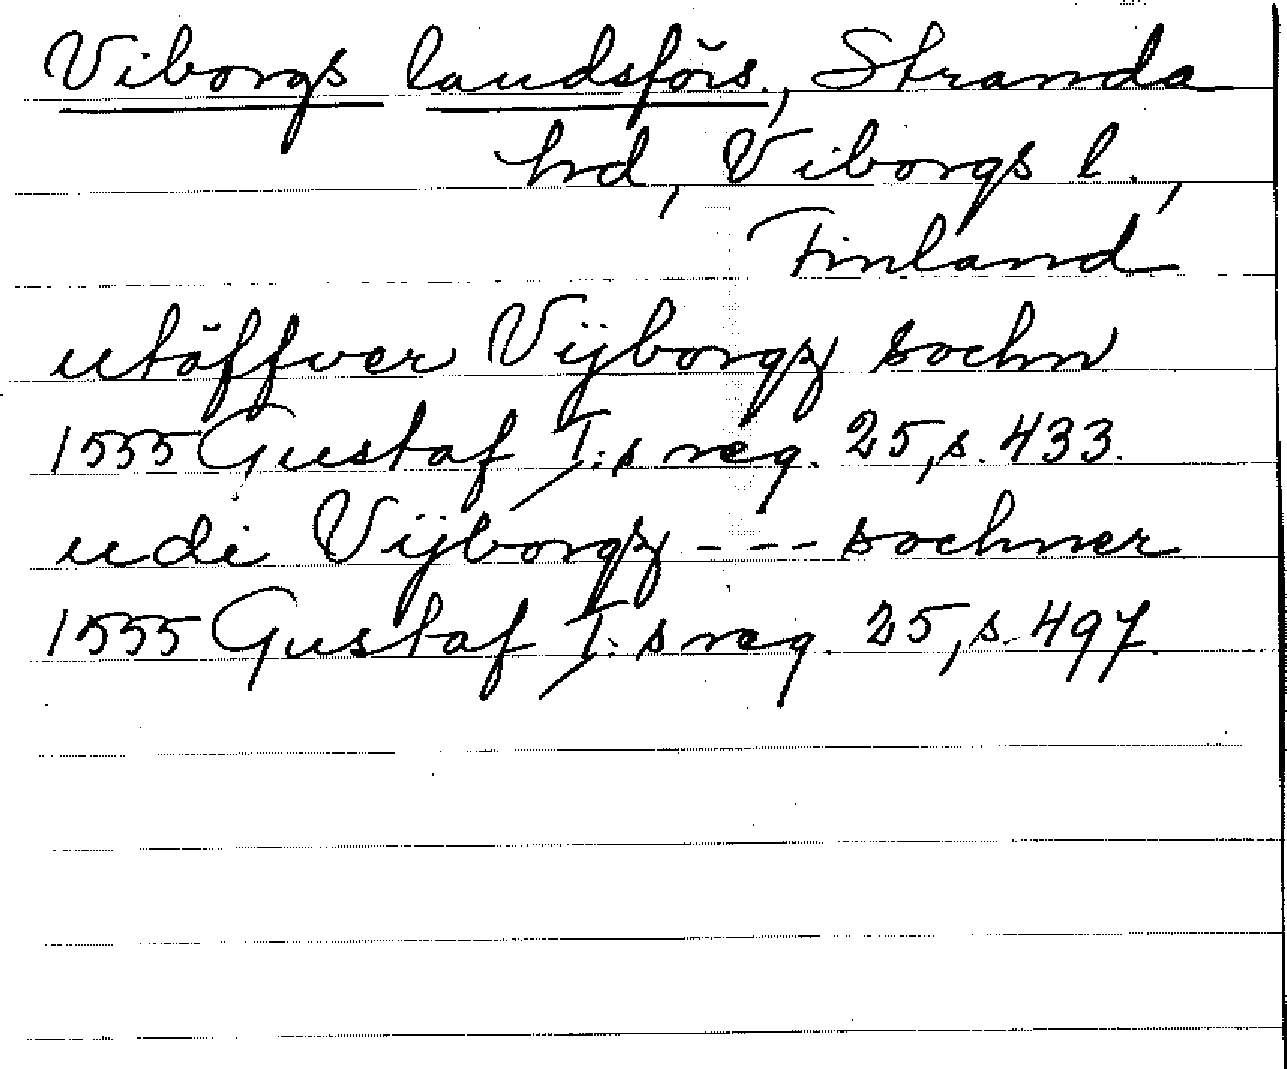 Viborgs landsförs., Stranda
hd, Viborgs l.,
Finland
utöffver Vijborgz sochn
1555 Gustaf I:s reg. 25, s. 433.
udi Vijborgz - - - sochner
1555 Gustaf I:s reg. 25, s. 497.